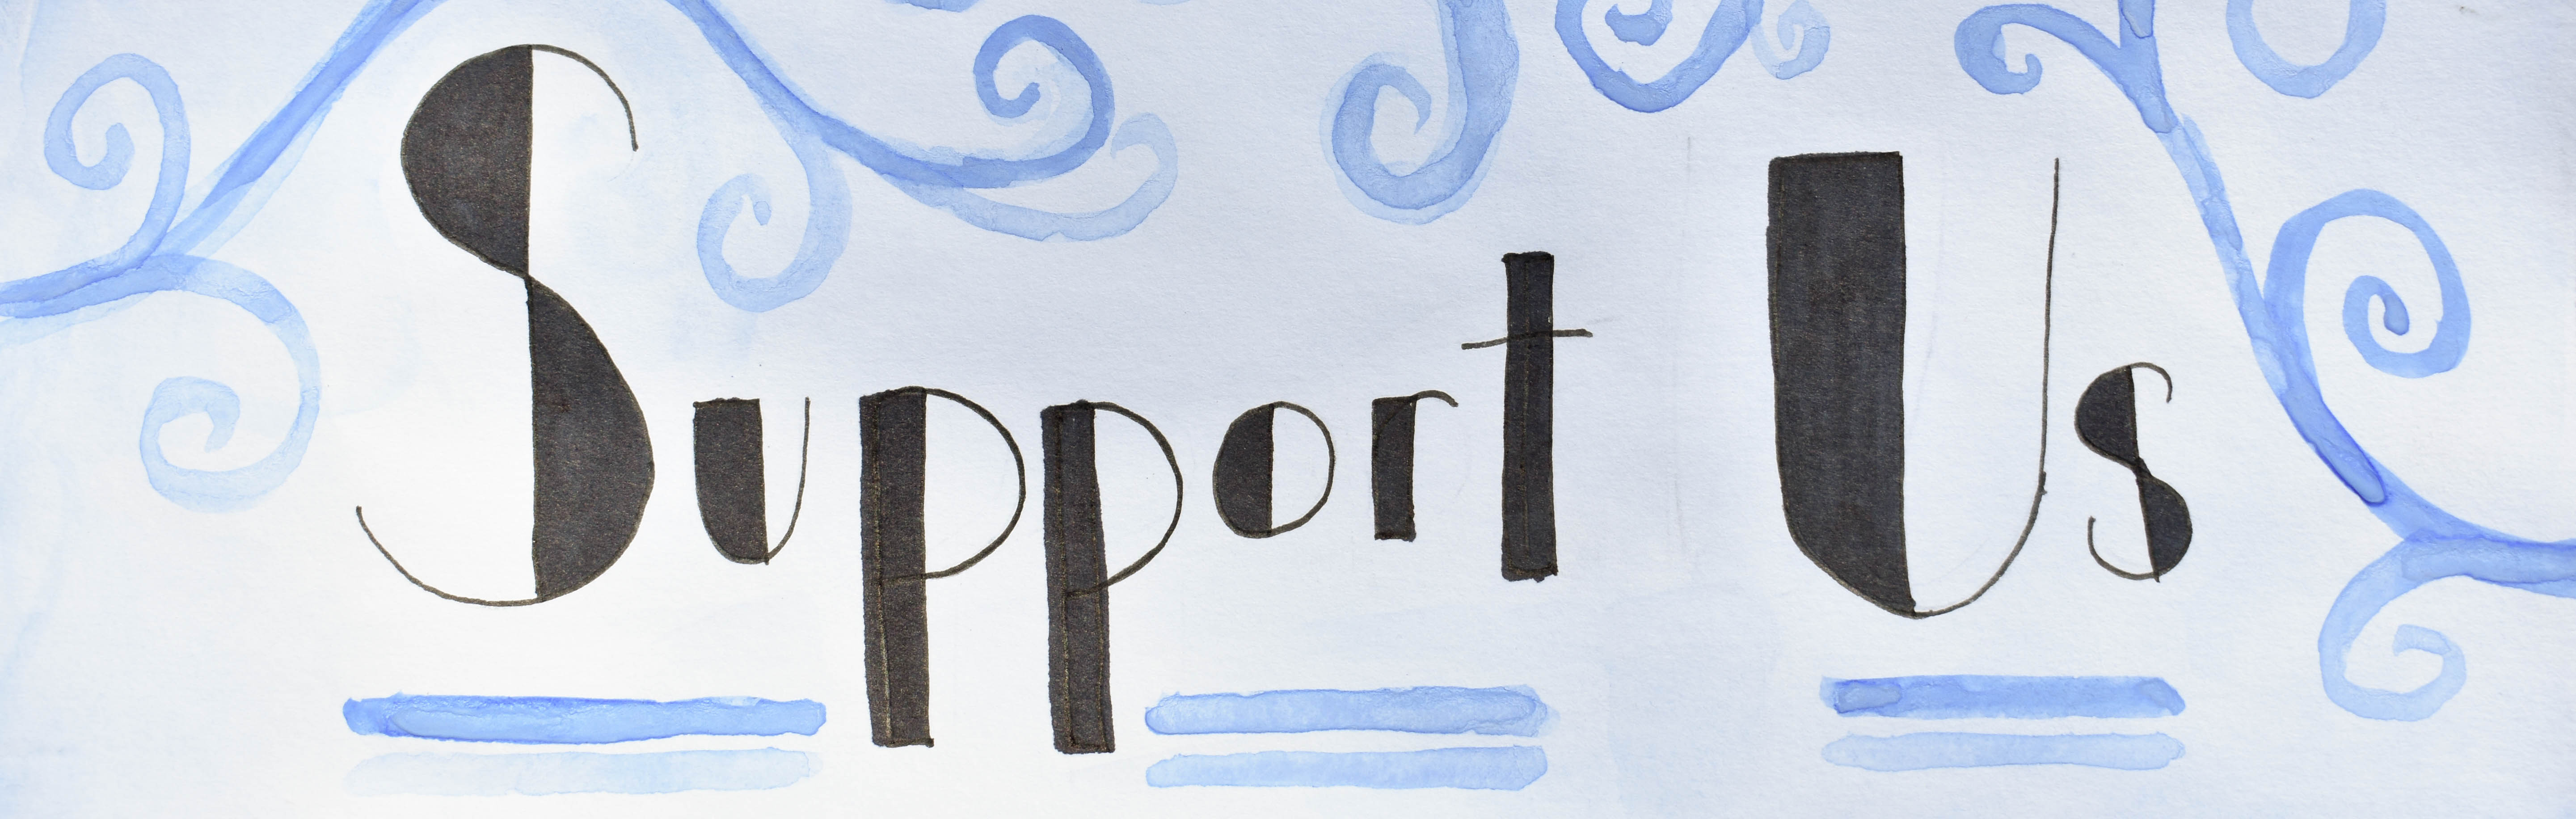 Support Us